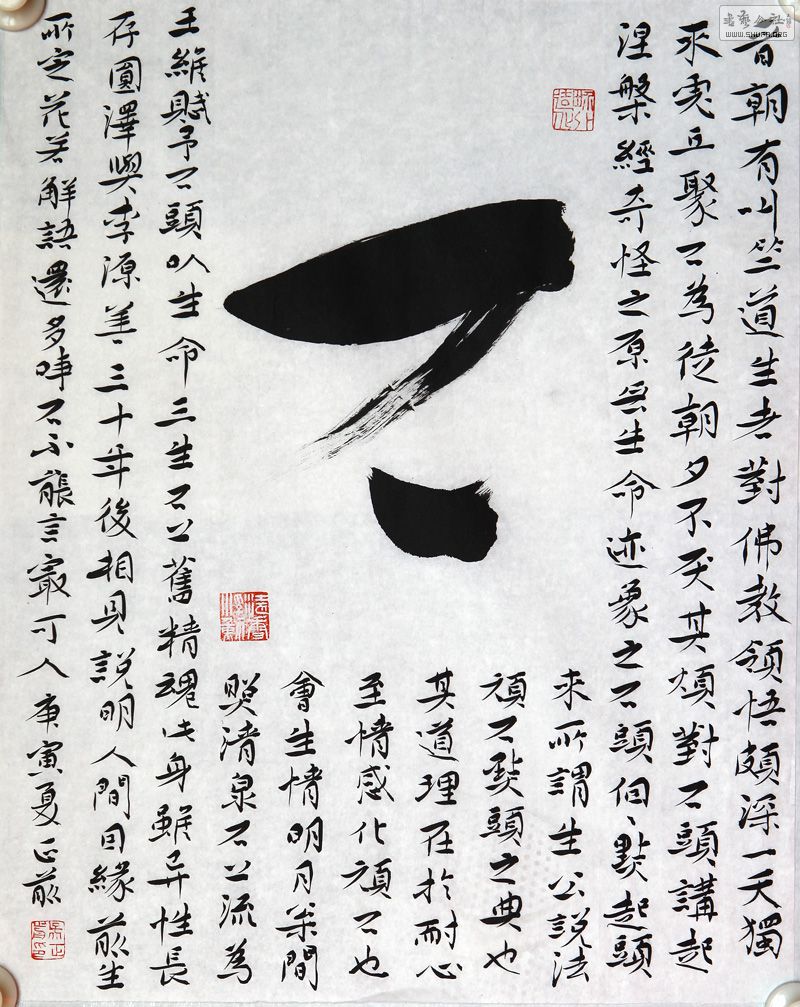 石
昔朝有叫竺道生者對佛教領悟頗深一天獨
來虎丘聚石為徒朝夕不厌其煩對石頭講起
涅槃經奇怪之原無生命迹象之石頭但點起頭
來所謂生公說法
頑石點頭之典也
其道理在於耐心
至情感化頑石也
會生情明月松間
照清泉石上流為
王維賦予石頭以生命三生石上舊精魂此身雖异性長
存圓澤與李源善三十年後相見說明人間因緣前生
所定花若解語還多事石不能言最可人庚寅夏正前
書藝公社
WWW.SHUFA.ORG